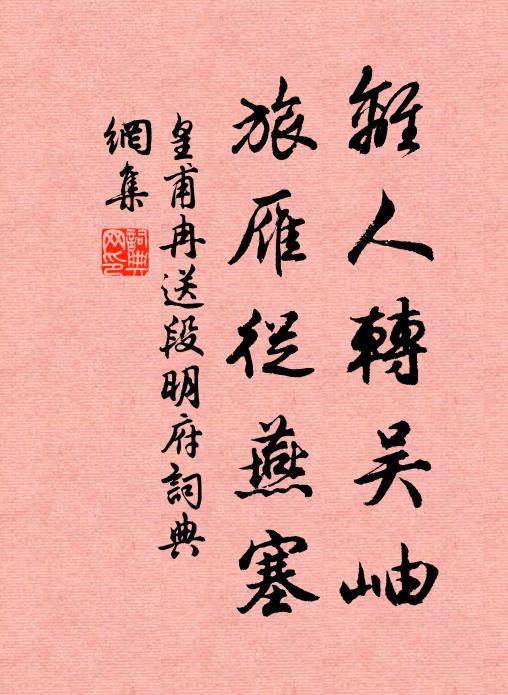 離人轉吴岫
旅雁從燕塞
皇甫冉送段明府詞典
網集
詞典網印